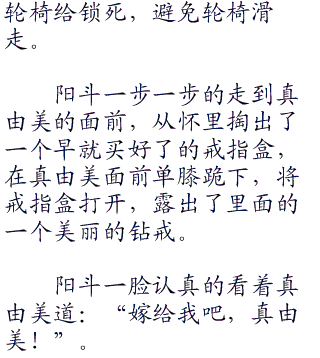 轮椅给锁死，避免轮椅滑
走。
阳斗一步一步的走到真
由美的面前，从怀里掏出了
一个早就买好了的戒指盒，
在真由美面前单膝跪下，将
戒指盒打开，露出了里面的
一个美丽的钻戒。
阳斗一脸认真的看着真
由美道：“嫁给我吧，真由
美！”。